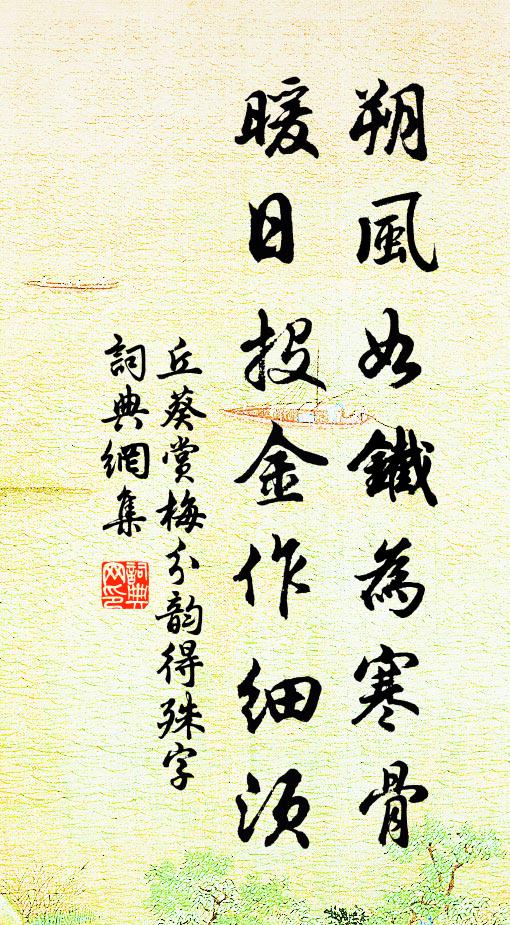 朔風如鐵為寒骨
暖日投金作細須
丘葵賞梅分韵得殊字
詞典網集
詞典网印